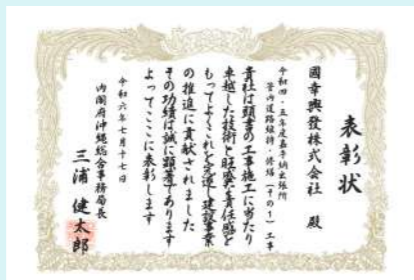 表彰状
國幸興發株式会社 殿
令和四・五年度嘉手納出張所
管内道路維持・修繕(その1)工事
貴社は頭書の工事施工に当たり
卓越した技術と旺盛な責任感を
もってよくこれを完遂し建設事業
の推進に貢献されました
その功績は誠に顕著であります
よってここに表彰します
令和六年七月十七日
内閣府沖縄総合事務局長
三浦健太郎